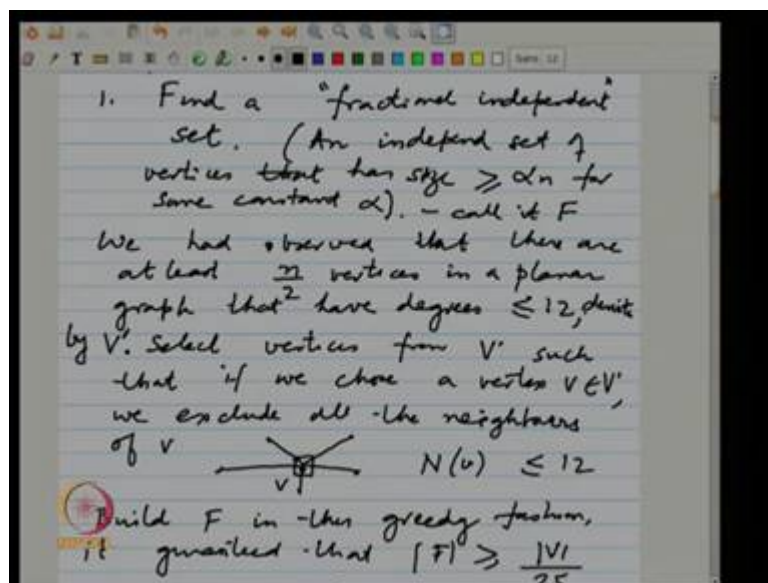 1. Find a "fractional independent"
set. (An independ set of
vertices that has size ≥ αn for
some constant α). - call it F
We had observed that there are
at least n/2 vertices in a planar
graph that have degrees ≤ 12, denote
by V'. Select vertices from V' such
that if we chose a vertex v ∈ V',
we exclude all the neighbours
of v
v
N(v) ≤ 12
Build F in this greedy fashion,
it guranteed that |F| ≥ |V|